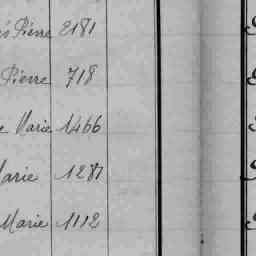 Pierre 2181
Pierre 718
e Marie 1466
Marie 1287
Marie 1112